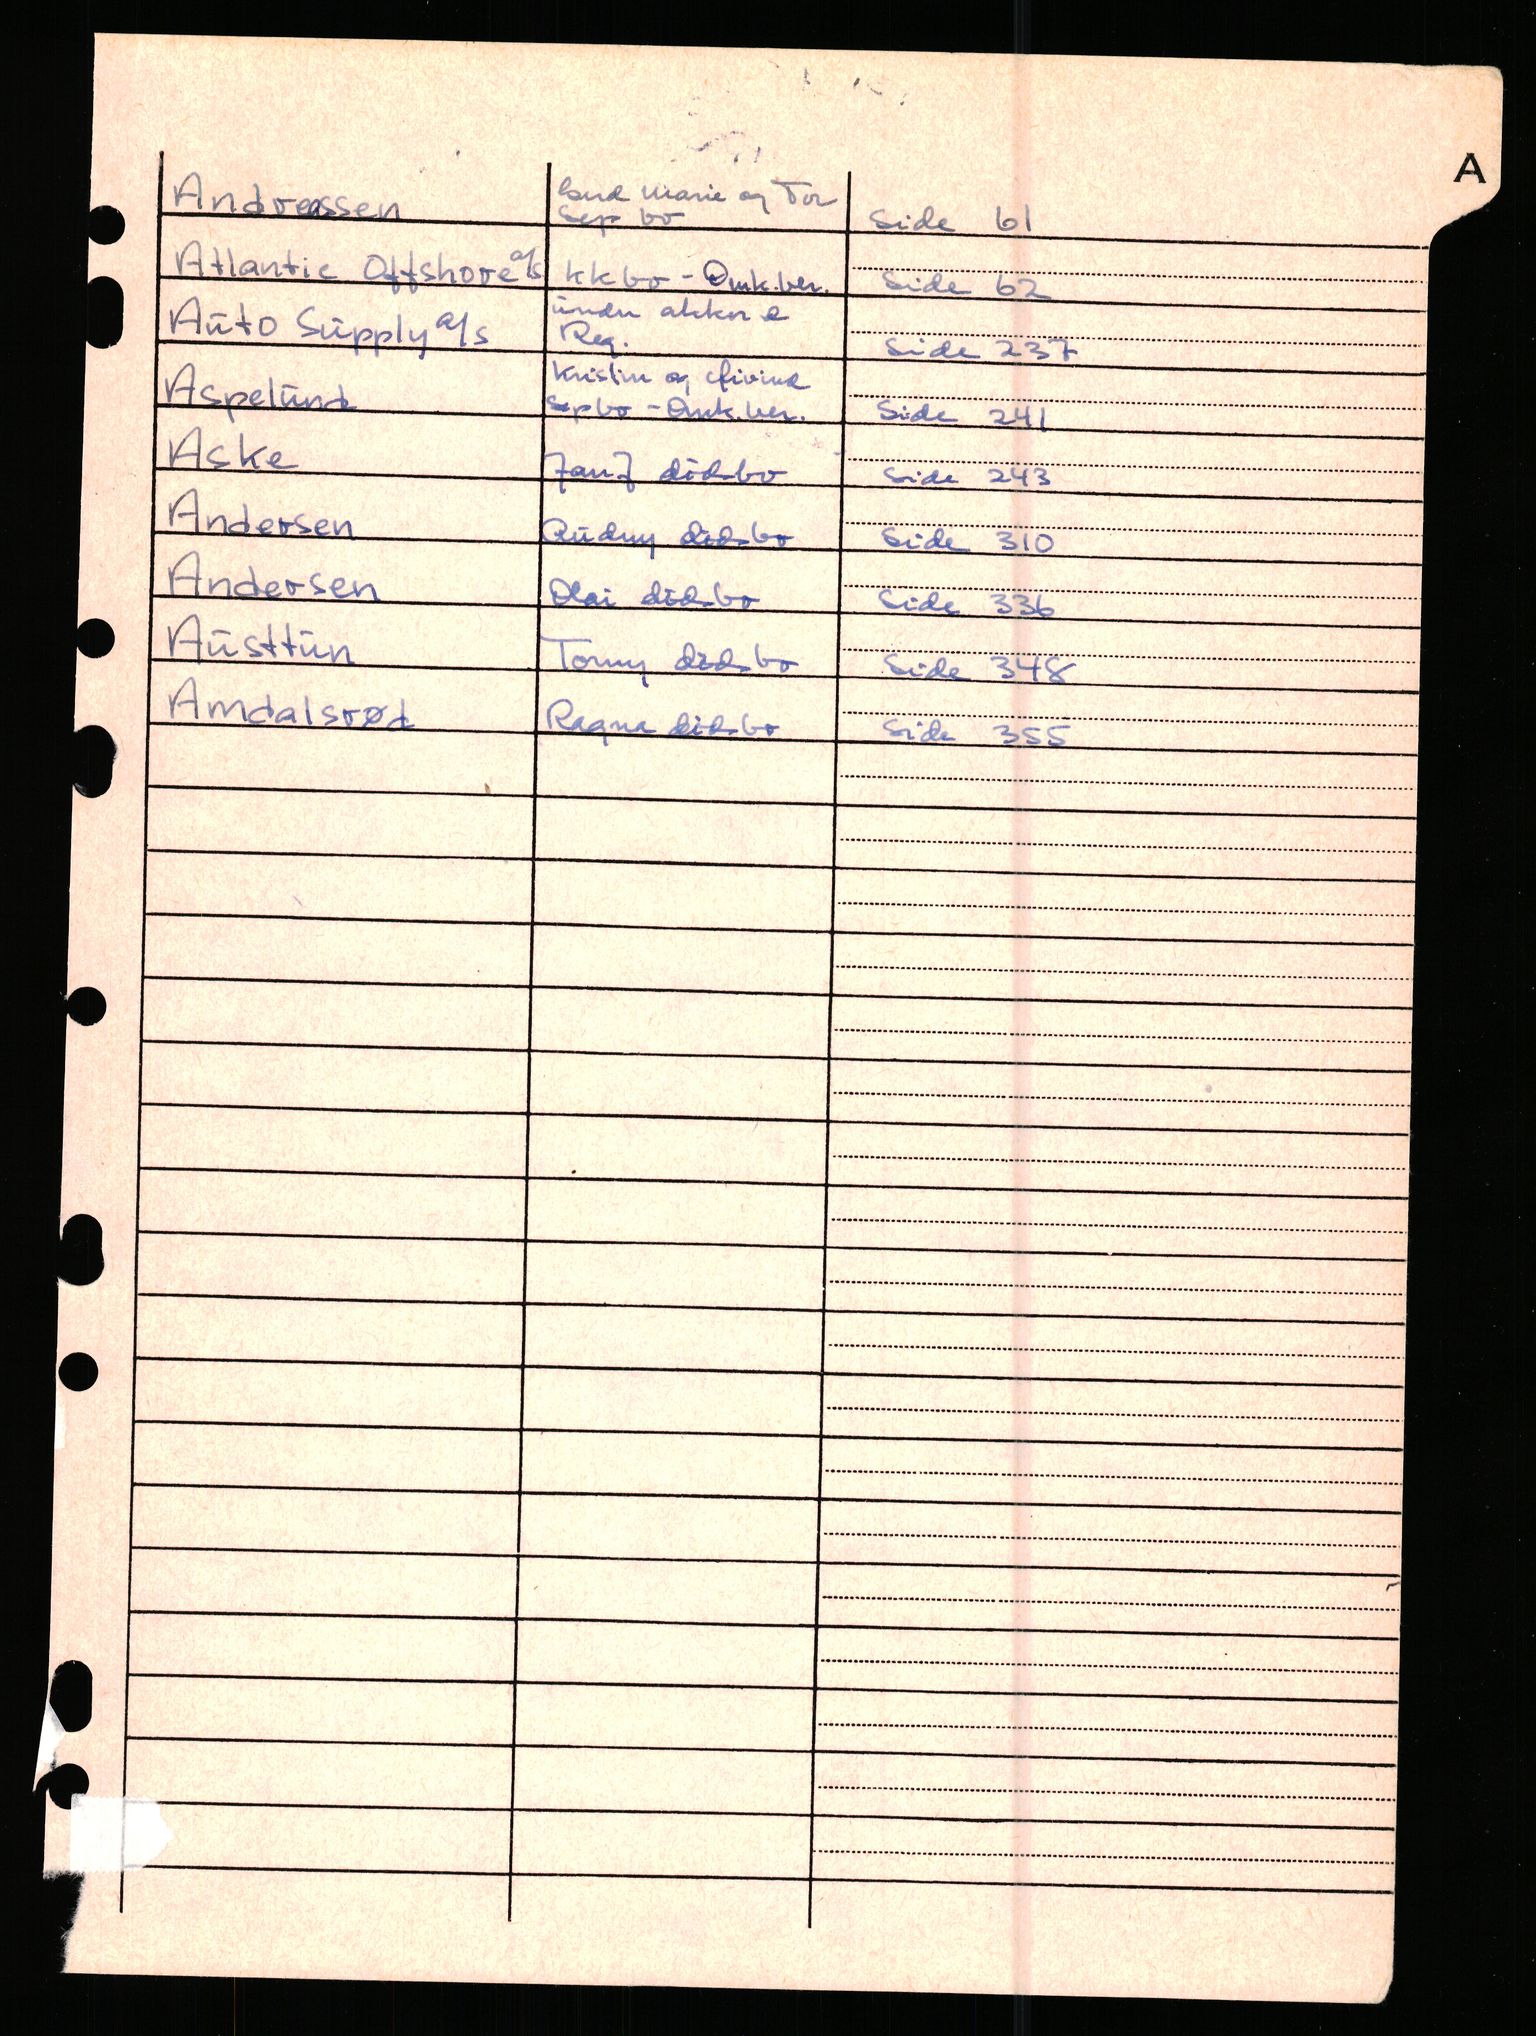 A
Andreassen Gerd Marie og Tor
sep bo Side 61
Atlantic Offshore a/s kk bo - Omk.ber. Side 62
under akkord
Auto Supply a/s Reg. Side 237
Kristin og Eivind
Aspelund sep bo - Omk.ber. Side 241
Aske Jan J dødsbo Side 243
Andersen Rudny dødsbo Side 310
Andersen Olai dødsbo Side 336
Austtun Tonny dødsbo Side 348
Amdalsrød Ragna dødsbo Side 355